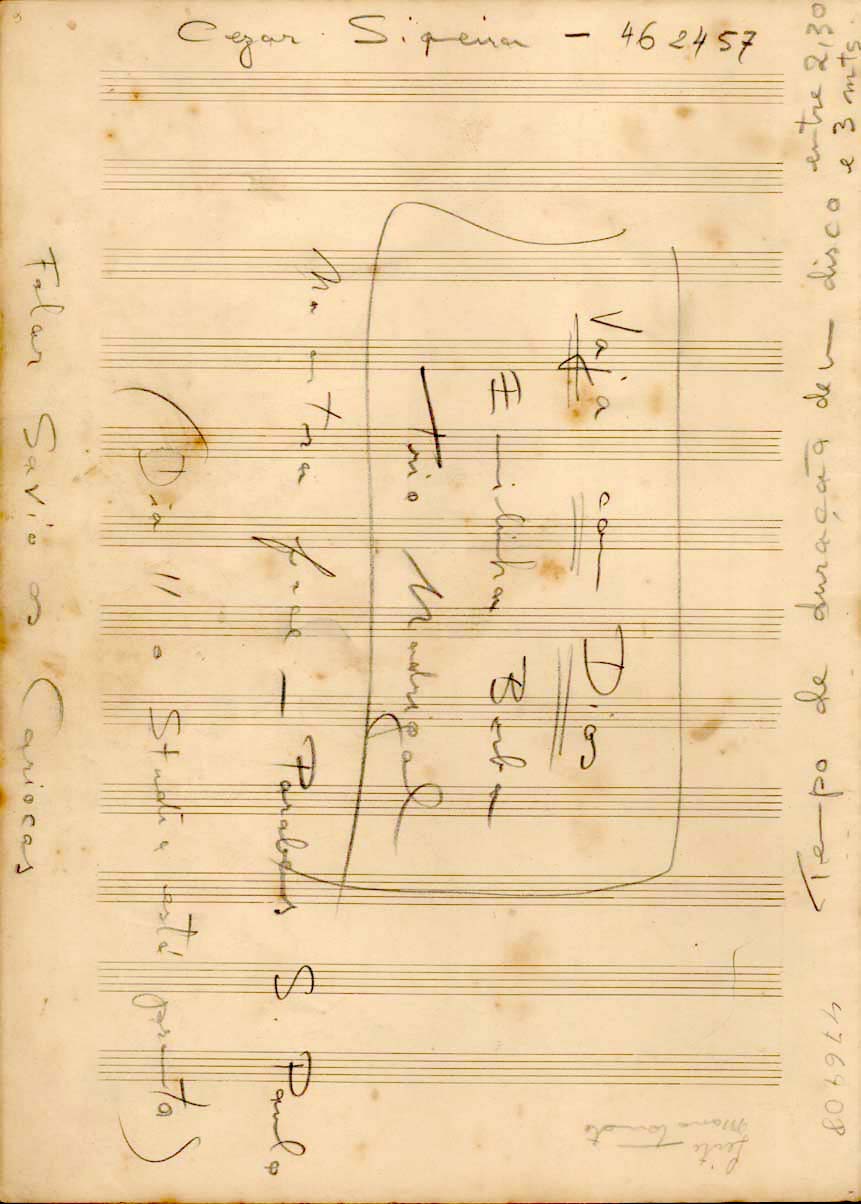 Cezar Siqueira - 462457
Tempo de duração de um disco entre 2,30
e 3 mts.
Vaja con Dios
Emilinha Borba
Trio Madrigal
Na outra face - Parabens S. Paulo
(Dia 11 o Studio está pronto)
Falar Savio os Cariocas
476408